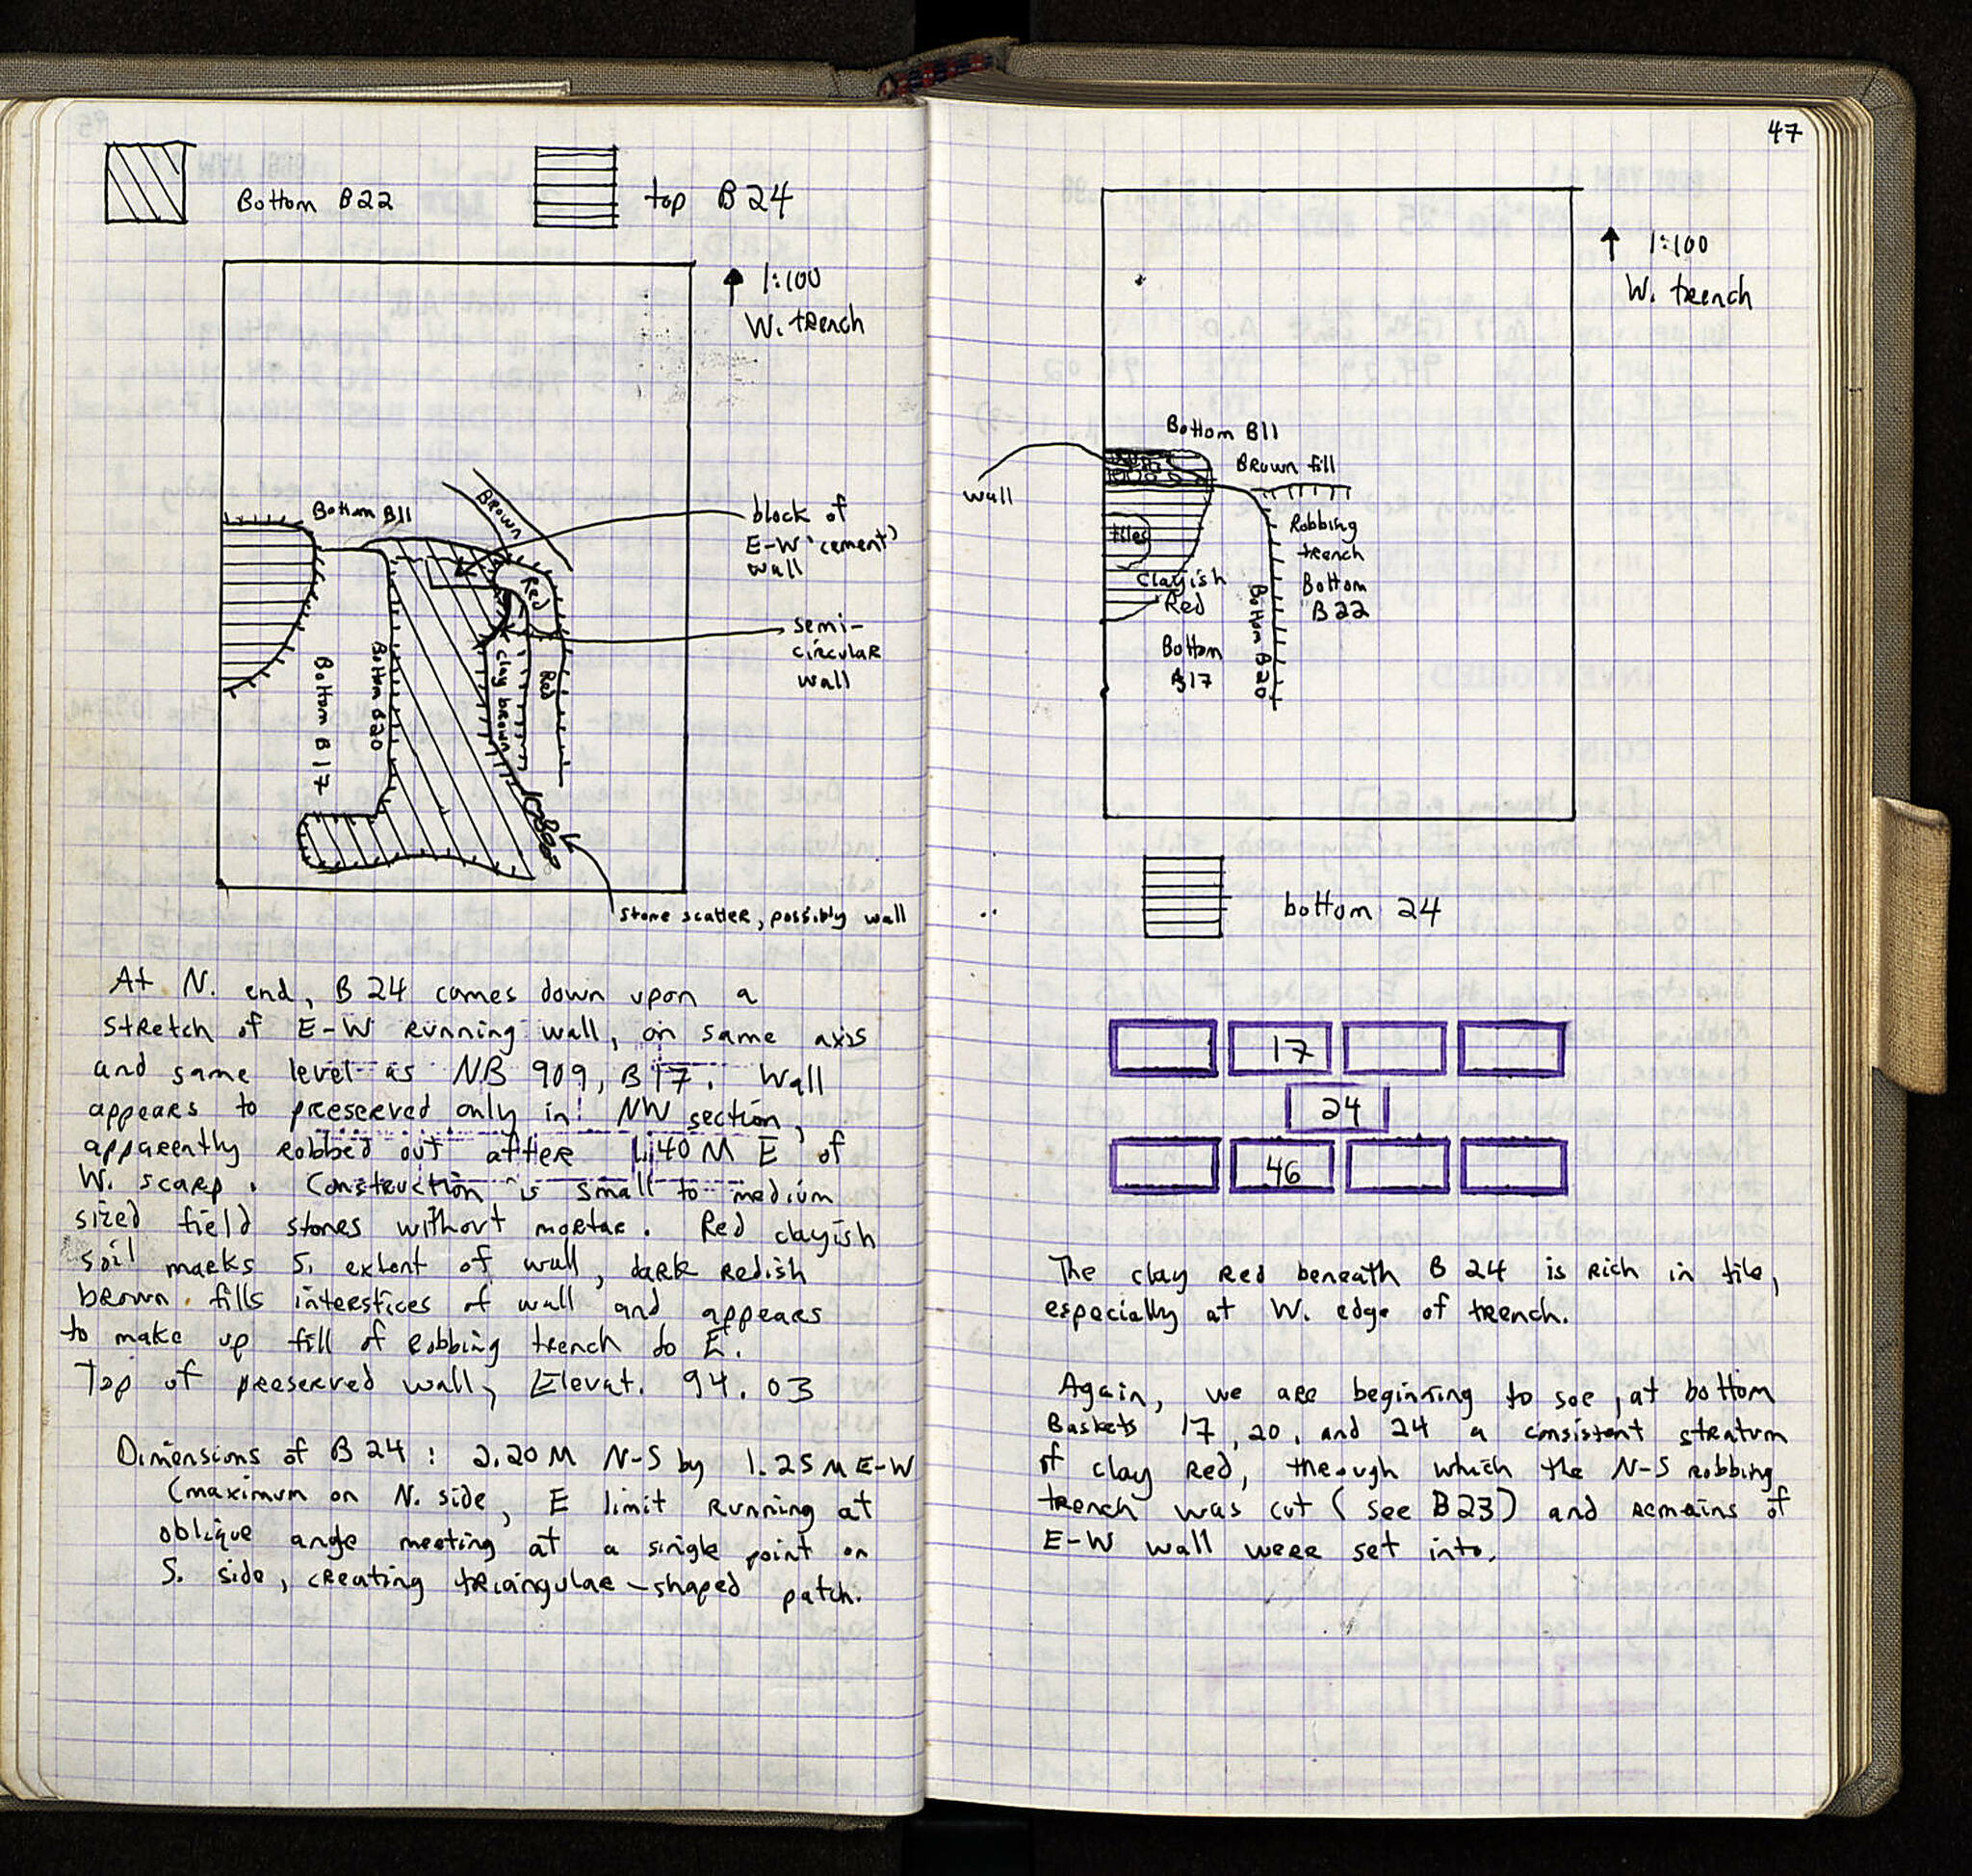 Bottom B22
top B24
1:100
W. trench
Brown
Bottom B11
block of
E-W 'cement'
wall
Red
semi-
circular
wall
Red
clay brown
Bottom B20
Bottom B17
stone scatter, possibly wall
At N. end, B 24 comes down upon a
stretch of E-W running wall, on same axis
and same level as NB 909, B17. Wall
appears to preserved only in NW section,
apparently robbed out after 1.40 M E of
W. scarp. Construction is small to medium
sized field stones without mortar. Red clayish
soil marks S. extent of wall, dark redish
brown fills interstices of wall and appears
to make up fill of robbing trench to E.
Top of preserved wall, Elevat. 94.03
Dimensions of B 24: 2.20 M N-S by 1.25 M E-W
(maximum on N. side, E limit running at
oblique ange meeting at a single point on
S. side, creating triangular-shaped patch.
47
1:100
W. trench
Bottom B11
Brown fill
wall
Robbing
trench
Bottom
B22
tiles
Clayish
Red
Bottom B20
Bottom
B17
bottom 24
17
24
46
The clay red beneath B 24 is rich in tile,
especially at W. edge of trench.
Again, we are beginning to see, at bottom
Baskets 17, 20, and 24 a consistent stratum
of clay red, through which the N-S robbing
trench was cut (see B23) and remains of
E-W wall were set into.